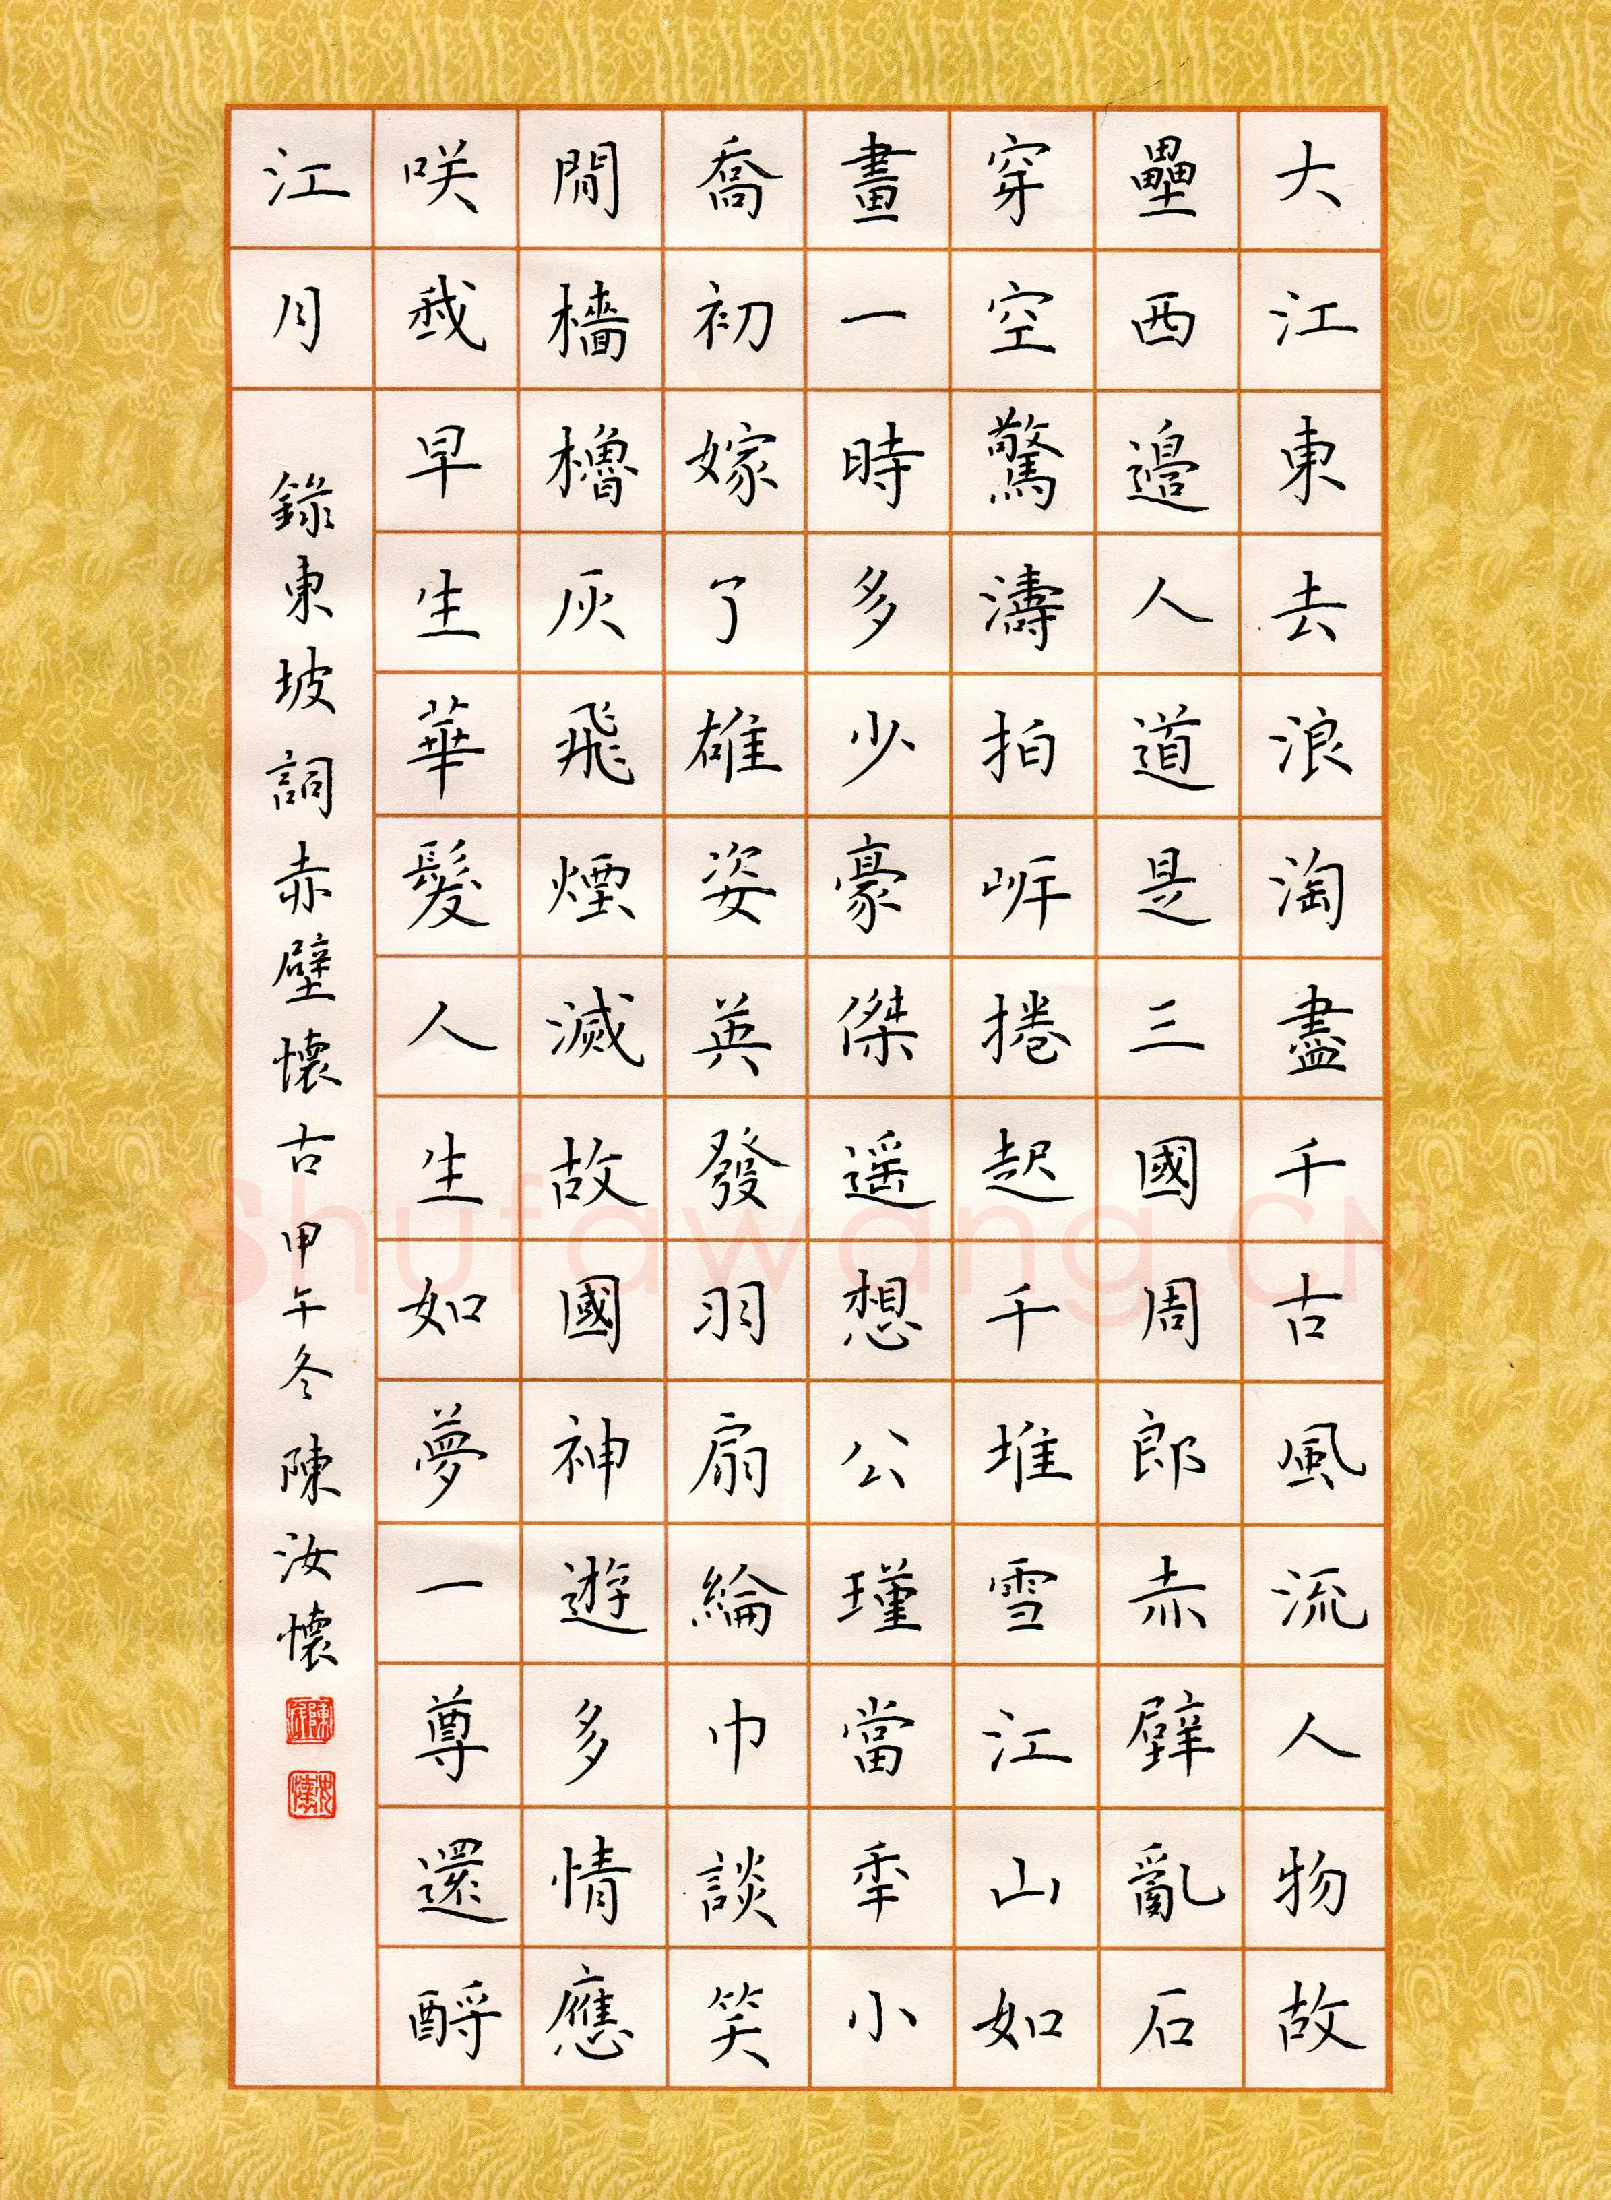 大江東去浪淘盡千古風流人物故
壘西邉人道是三國周郎赤壁亂石
穿空驚濤拍岸捲起千堆雪江山如
畫一時多少豪傑遥想公瑾當年小
喬初嫁了雄姿英發羽扇綸巾談笑
閒檣櫓灰飛煙滅故國神遊多情應
咲我早生華髮人生如夢一尊還酹
江月
錄東坡詞赤壁懷古甲午冬陳汝懷
Shufawang.CN